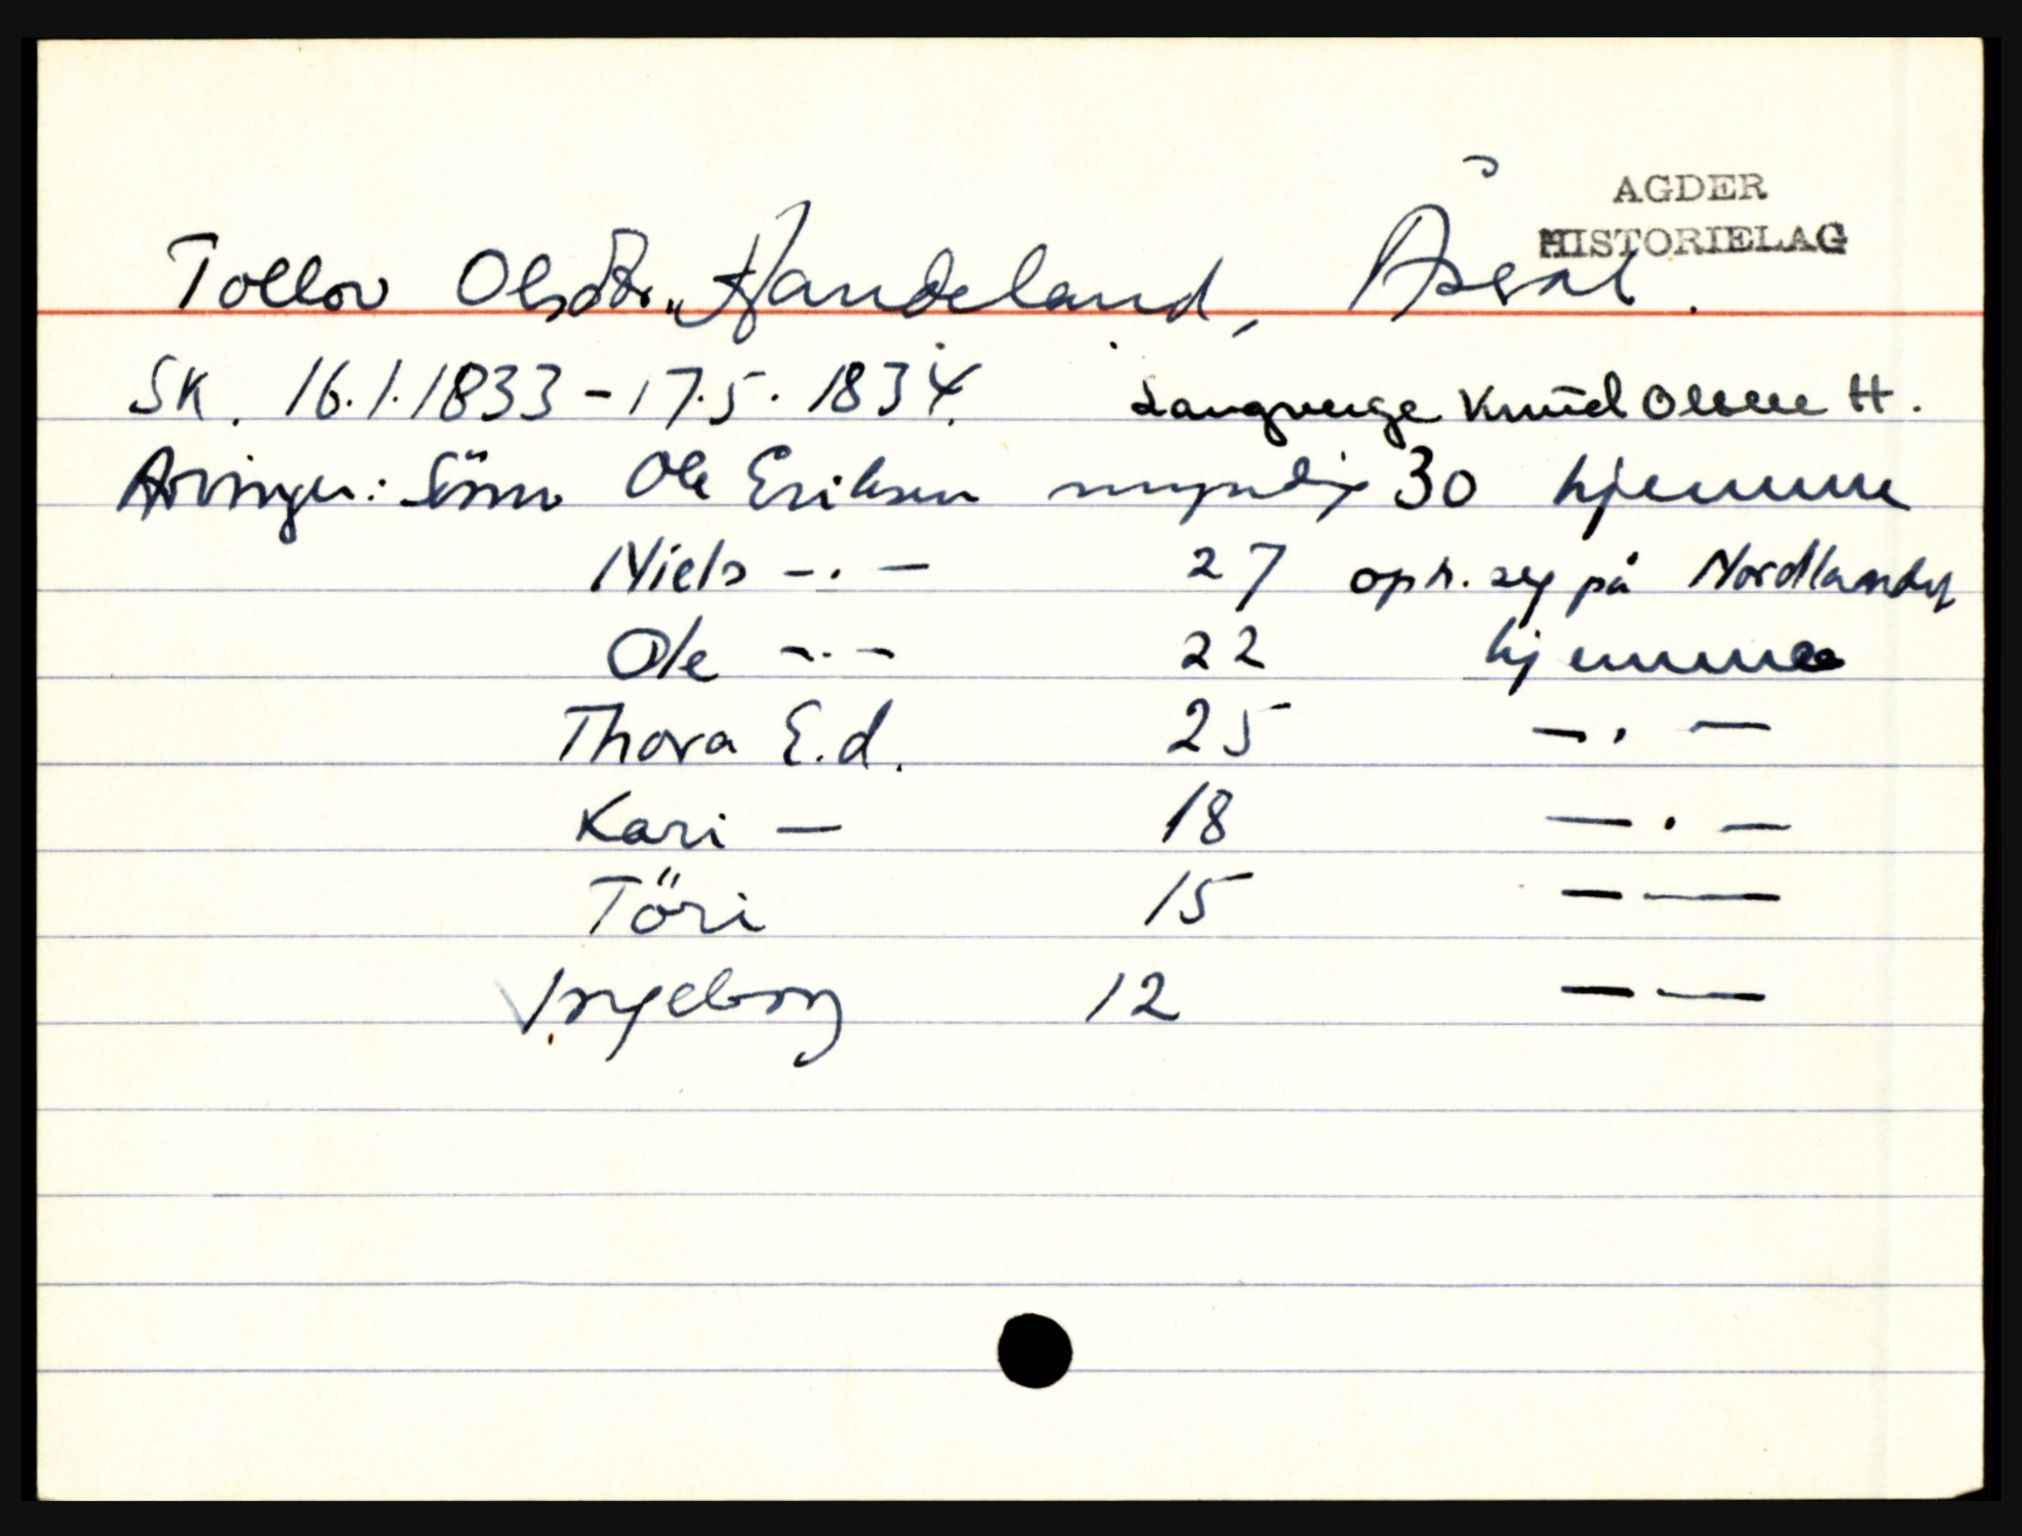 AGDER
HISTORIELAG
Tollov Olsdtr., Handeland, Åseral.
SK. 16.1.1833 - 17.5.1834. Laugverge Knud Olsen H.
Arvinger: Sönn Ole Eriksen myndig 30 hjemme
Niels -.- 27 oph. seg på Nordlandet
Ole -.- 22 hjemme
Thora E.d. 25 -.-
Kari - 18 -.-
Töri 15 - -
Ingeborg 12 - -